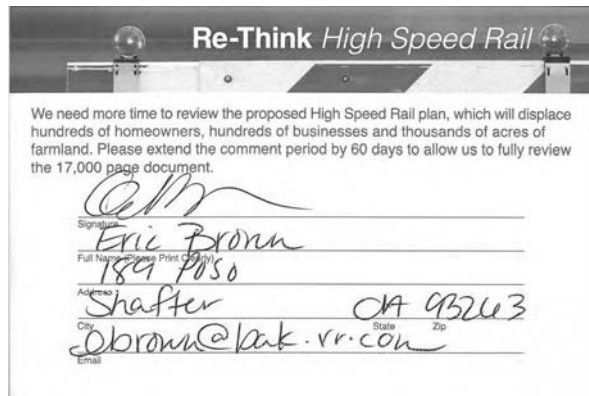 Re-Think High Speed Rail
We need more time to review the proposed High Speed Rail plan, which will displace
hundreds of homeowners, hundreds of businesses and thousands of acres of
farmland. Please extend the comment period by 60 days to allow us to fully review
the 17,000 page document.
Signature
Eric Brown
Full Name (Please Print Clearly)
189 Poso
Address
Shafter CA 93263
City State Zip
ebrown@bak.rr.com
Email